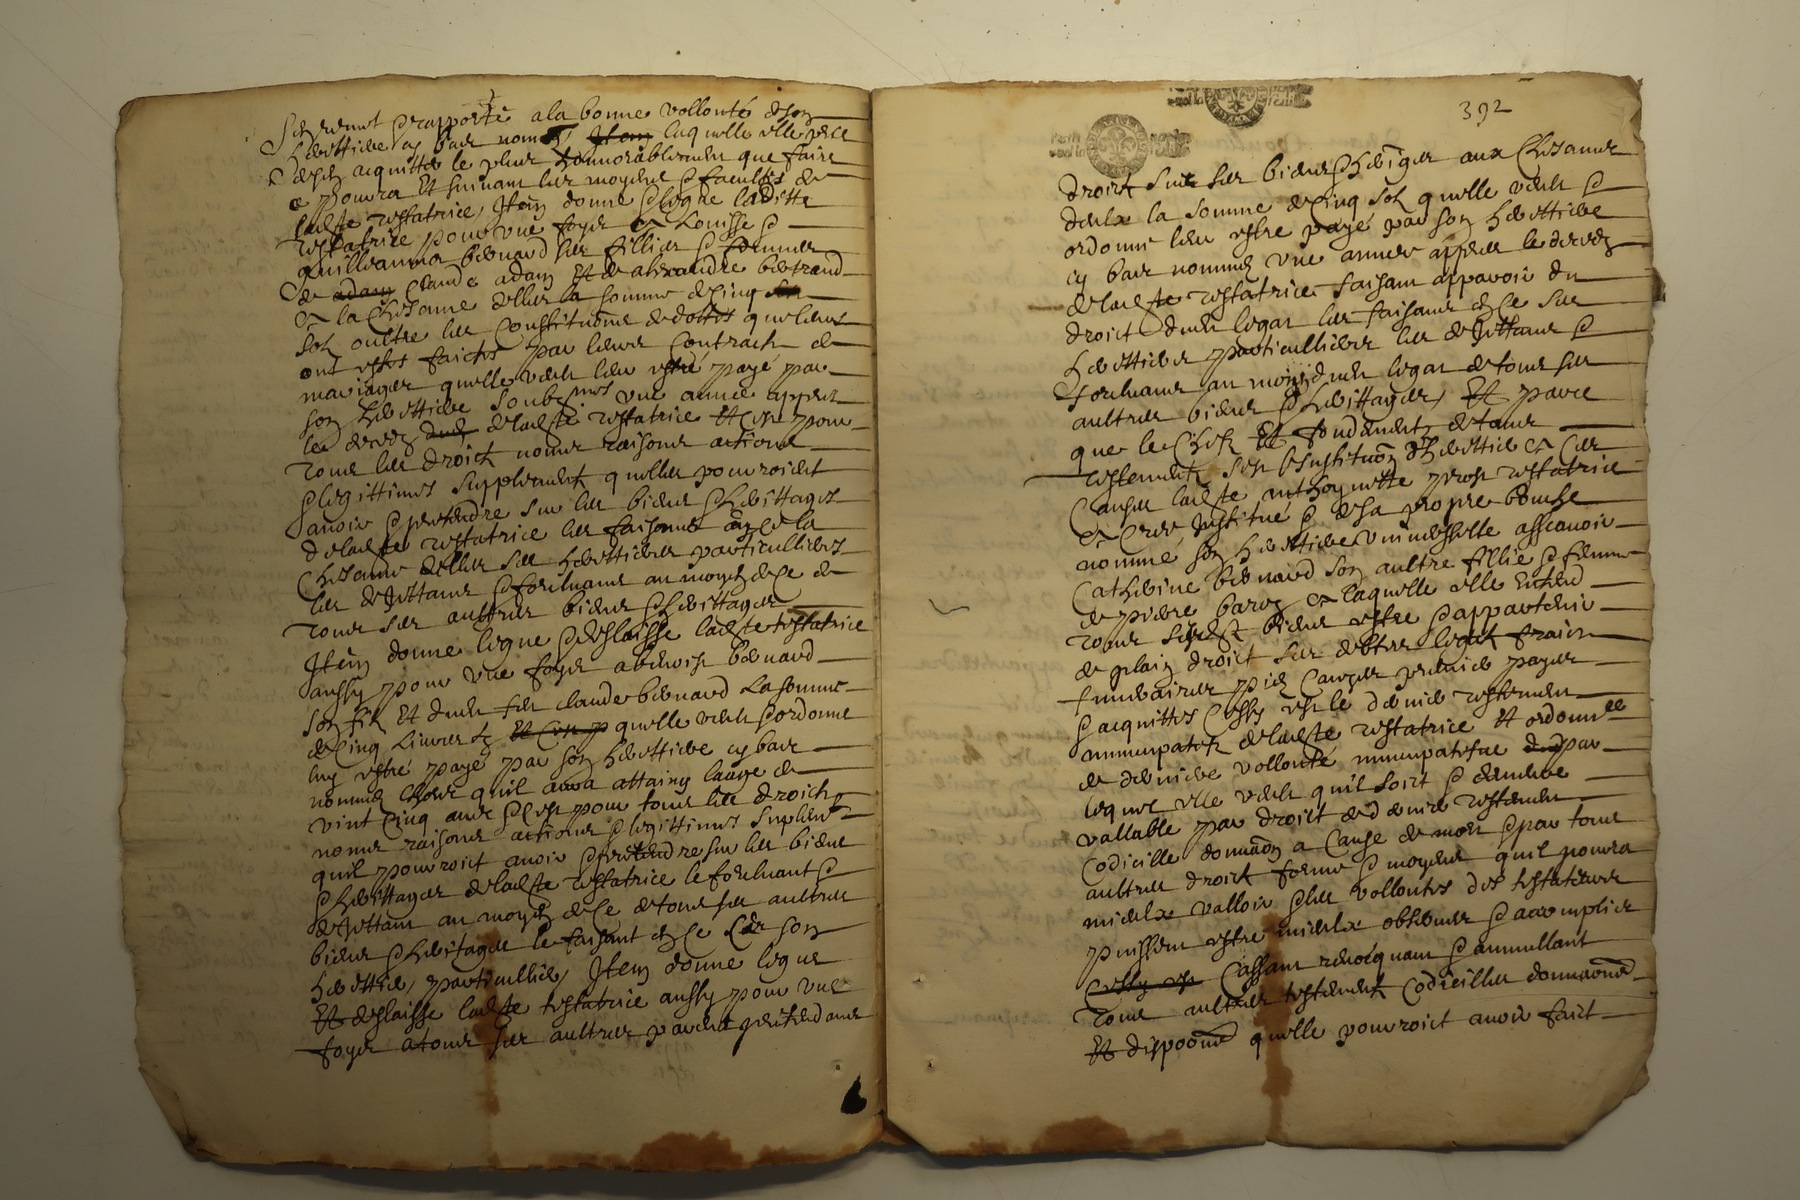 se remet et rapporte a la bonne vollonté de son
herettiere cy bas nommée laquelle elle prie
de s'en acquitter le plus honnorablement que faire
ce pourra Et suivant les moyens et facultés de
ladite testatrice, Item donne et legue laditte
testatrice pour une foys a Louisse et
Guilleauma bernard ses fillies et femmes
de adam Claude adam Et de alexandre bertrand
a la chesanne d'elles la somme de cinq
sols oultre les constitutions de dottes que leurs
ont estes faictes par leurs contracts de
mariages quelle veult leur estre payé par
son herettiere soubznommée une année appres
le decedz de ladite testatrice Et c'est pour
tous les droicts noms raisons actions
et legittimes supplements quelles pourroient
avoir et prettendre sur les biens et herittages
de ladite testatrice les faisant en ce la
chesanne d'elles ses herettieres particullieres
les dejettant et forcluant au moyen de ce de
tous ses aultres biens et herittages
Item donne legue et deslaisse ladite testatrice
aussy pour une foys a benoist bernard
son filz Et du feu claude bernard La somme
de Cinq Livres Et C'est p quelle veult et ordonne
luy estre payé par son herettiere cy bas
nommée lhors quil aura attainy laage de
vint Cinq ans et c'est pour tous les droicts
noms raisons actions et legittimes suplem[ent]
quil pourroit avoir et prettendre sur les biens
et herittages de ladite testatrice le forcluant et
dejettant au moyen de ce de tous ses aultres
biens et heritages le faisant en ce son
herettier particullier, Item donne legue
Et deslaisse ladite testatrice aussy pour une
foys a tous ses aultres parents prettendans
392
droict sur ses biens et heritages aux chesanne
d'eulx la somme de cinq sols quelle veult et
ordonne leur estre payé par son herettiere
cy bas nommée une année appres le decedz
de ladite testatrice faisant apparoir du
droict d'un legat les faisant en ce ses
herettiers particulliers les dejettant et
forcluant au moyen d'un legat de tous ses
aultres biens et herittages, Et parce
que le chef Et fondement de tous
testements est l'institution d'herettier a ces
causes ladite anthoynette testatrice
a creé Institué et de sa propre bouche
nomme son herettiere universselle asscavoir
Catherine bernard son aultre fillie et femme
de pierre baroz a laquelle elle entend
tous sesdits biens estre et appartenir
de plain droict ses debtes legats fraicz
funeraires piez causes prealable payer
et acquittes Cessy est le dernier testement
nuncupatif de ladite testatrice Et ordonnee
de derniere vollonté nuncupatifue par
lequel elle veult qu'il soict et demeure
vallable par droict de dernier testement
Codicille donnaon a Cause de mort et par tous
aultres droict forme et moyens quil pourra
mieulx valloir et ses vollontes des testateurs
puissent estre mieulx observer et accomplir
Cessy est Cassant revocquant et annullant
Tous aultres testements Codicilles donnaons
Et dispoons quelle pourroict avoir faict